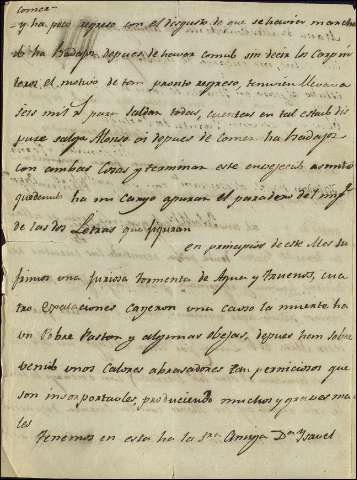 comer-
y ha poco regreso con el disgusto de que se havian marcha
do ha Badajoz depues de haver comido sin decir los Carpin
teros, el motivo de tan pronto regreso, tanvien llevava
seis mil para saldar todas, cuentas en tal estado dis
puse salga Alonso oi depues de Comer ha badajoz
con ambas Cosas y terminar este envejecido asunto
quedando ha mi Cargo apurar el paradero del
de las dos Letras que figuran
en principios de este Mes su
frimos una furiosa tormenta de Agua y truenos, cua
tro Cayeron una causo la muerte ha
un Pobre Pastor y algunas obejas, depues han sobre
venido unos Calores abrasadores tan perniciosos que
son insoportables, produciendo muchos y graves ma
les
tenemos en esta ha la Sra Amiga Da Ysavel